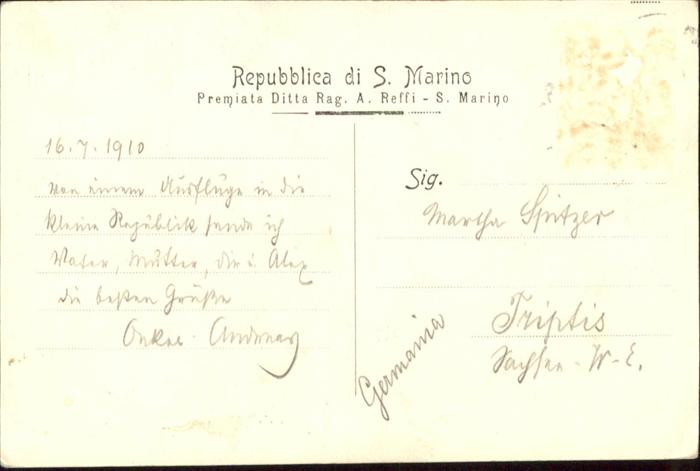 Repubblica di S. Marino
Premiata Ditta Rag. A. Reffi - S. Marino
16.7.1910
von einem Ausfluge in die
kleine Republik sende ich
Vater, Mutter, dir u. Alex
die besten Grüße
Onkel Andreas
Sig.
Martha Spitzer
Triptis
Sachsen-W-E.
Germania